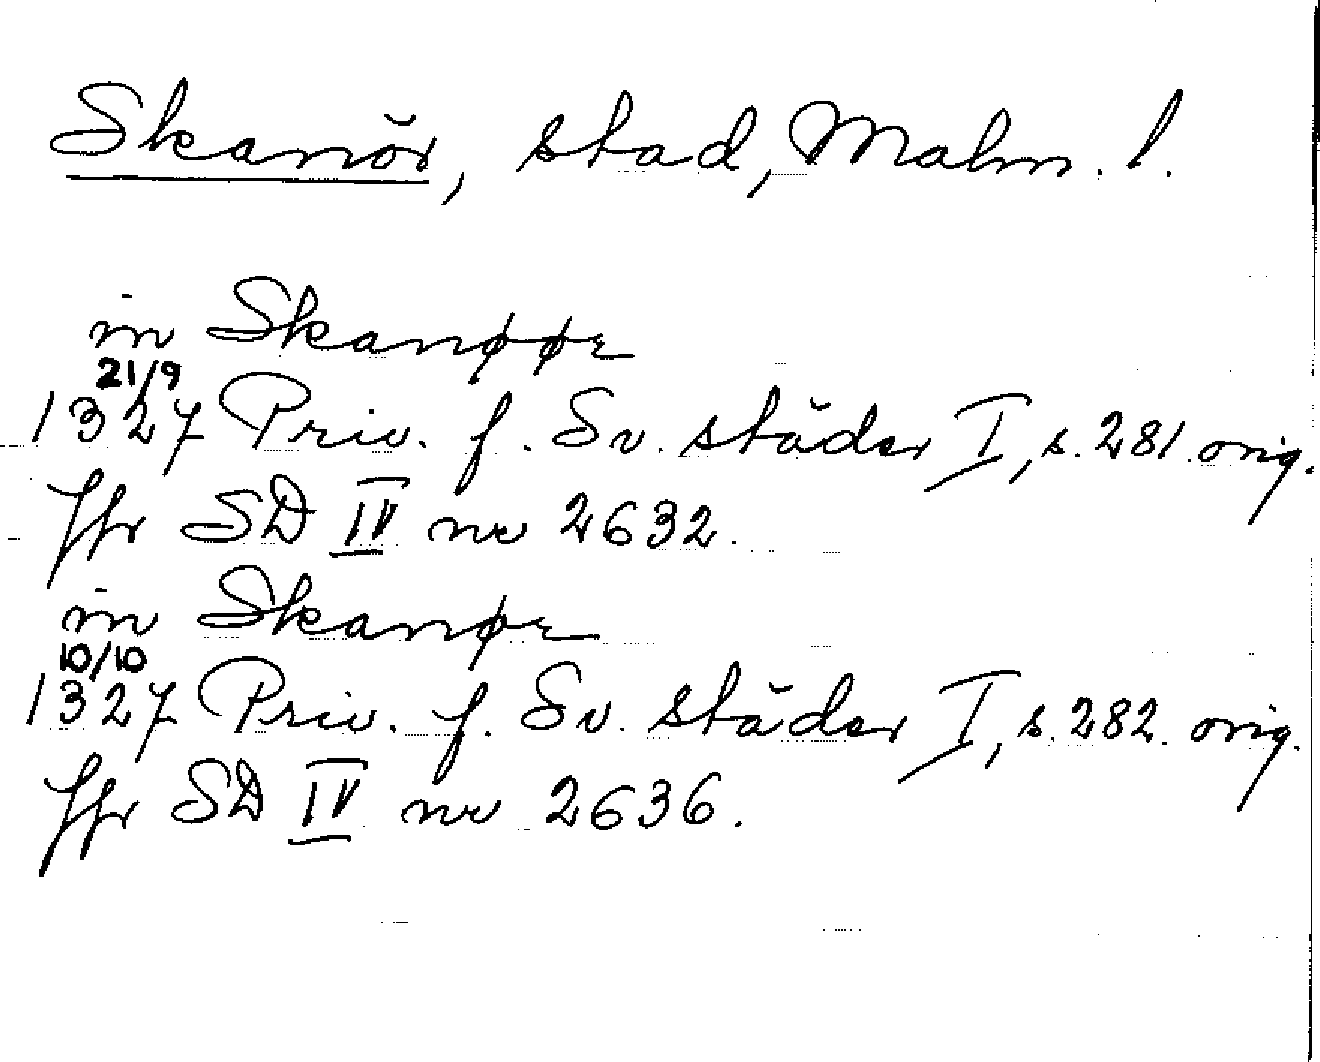 Skanör, stad, Malm. l.
in Skanøør
21/9
1327 Priv. f. Sv. städer I, s. 281. orig.
Jfr SD IV nr 2632.
in Skanør
10/10
1327 Priv. f. Sv. städer I, s. 282. orig.
Jfr SD IV nr 2636.